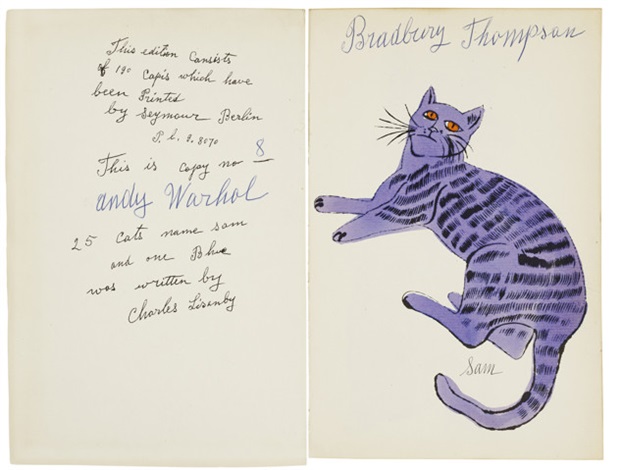 This edition Consists
of 190 Capis which have
been Printed
by Seymour Berlin
P. L. 9. 8070
This is copy no 8
andy Warhol
25 Cats name sam
and one Blue
was written by
Charles Lisanby
Bradbury Thompson
Sam